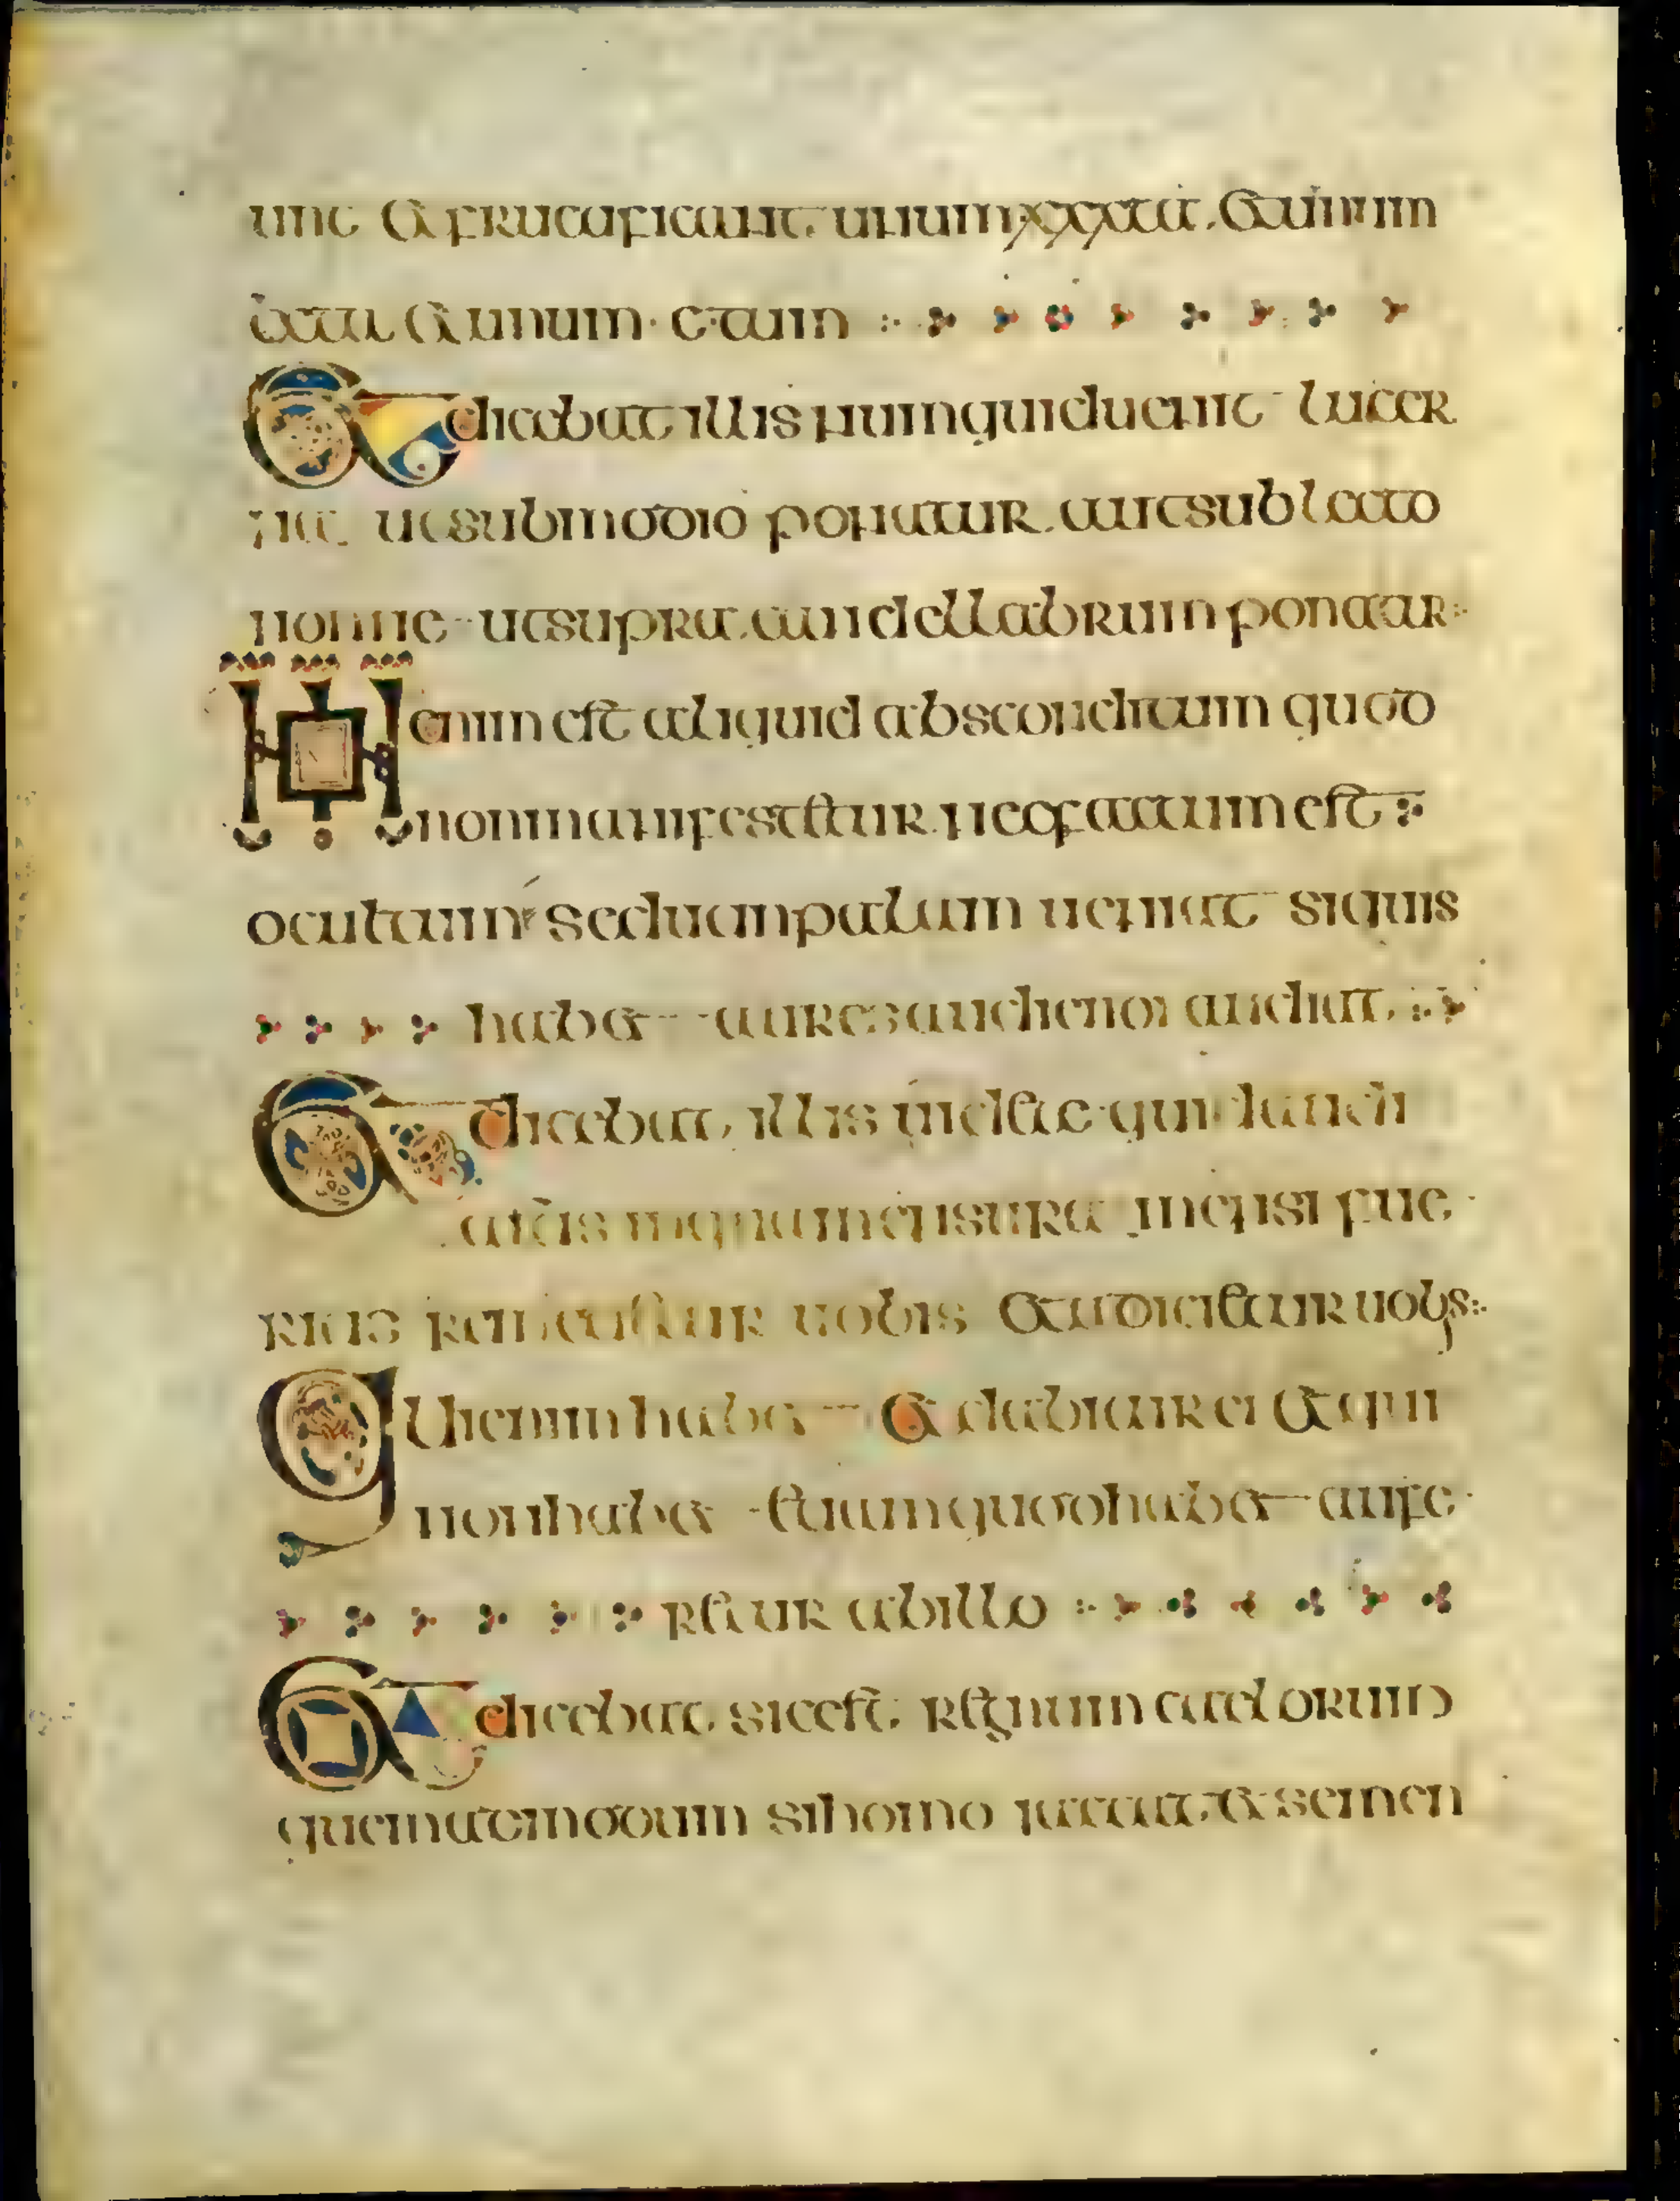 unt et fructificant unum xxxta. et unum
lxta et unum. c.tum
Et dicebat illis numquid uenit lucer
na ut sub modio ponatur. aut sub lecto
nonne ut supra candellabrum ponatur
Non enim est aliquid absconditum quod
non manifestetur neque factum est
occultum sed ut in palam ueniat si quis
habet aures audiendi audiat
Et dicebat illis uidete quid audi
atis in qua mensura mensi fue
ritis remetietur uobis et adicietur uobis
Qui enim habet et dabitur ei et qui
non habet etiam quod habet aufe
retur ab illo
Et dicebat sic est regnum caelorum
quemadmodum si homo iactat et semen